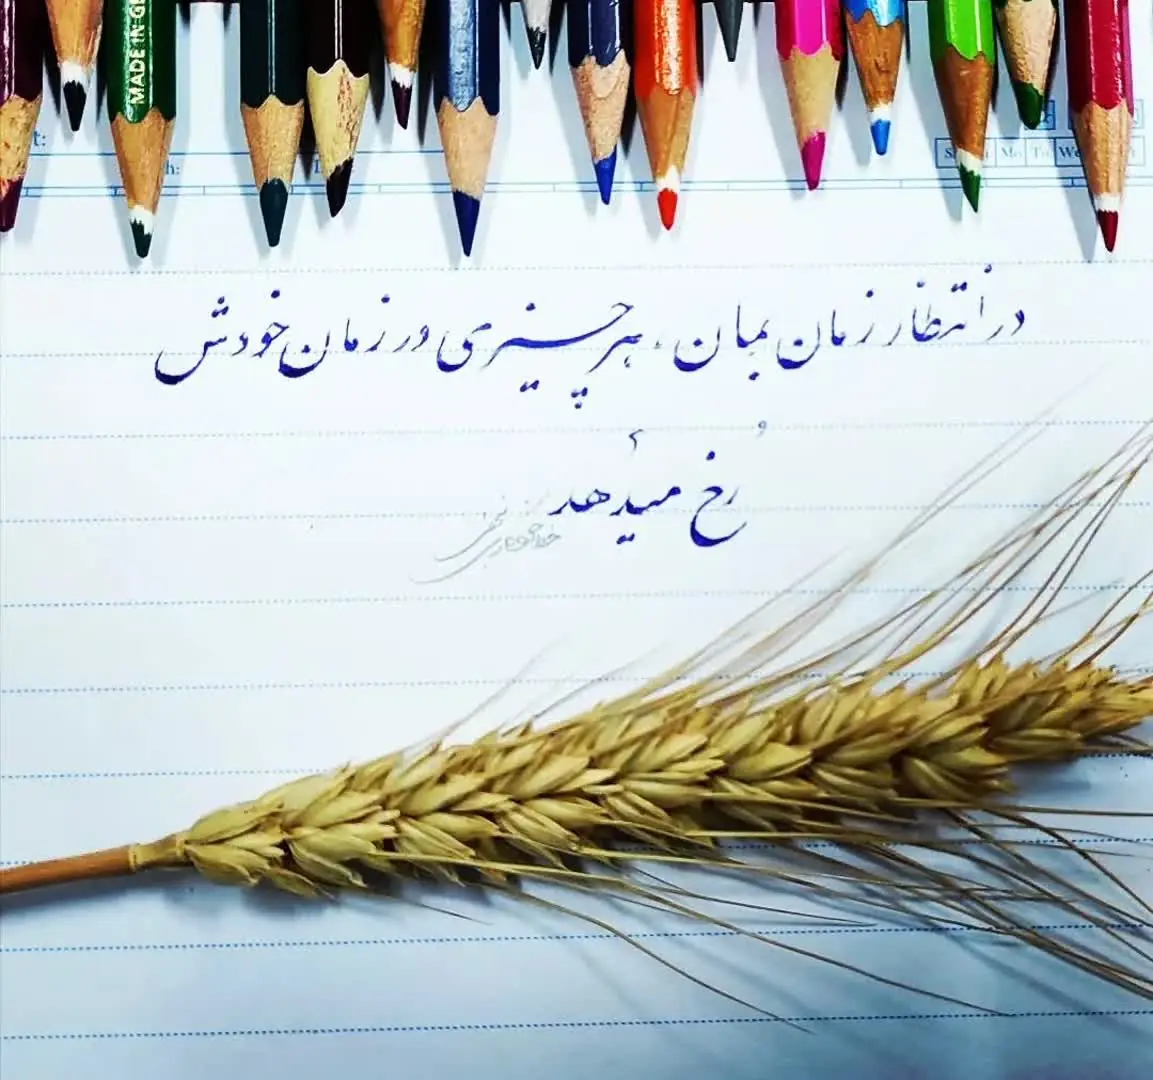 MADE IN GE
t:
h:
Mo Tu We
در انتظار زمان بمان ، هر چیزی در زمان خودش
رخ میدهد